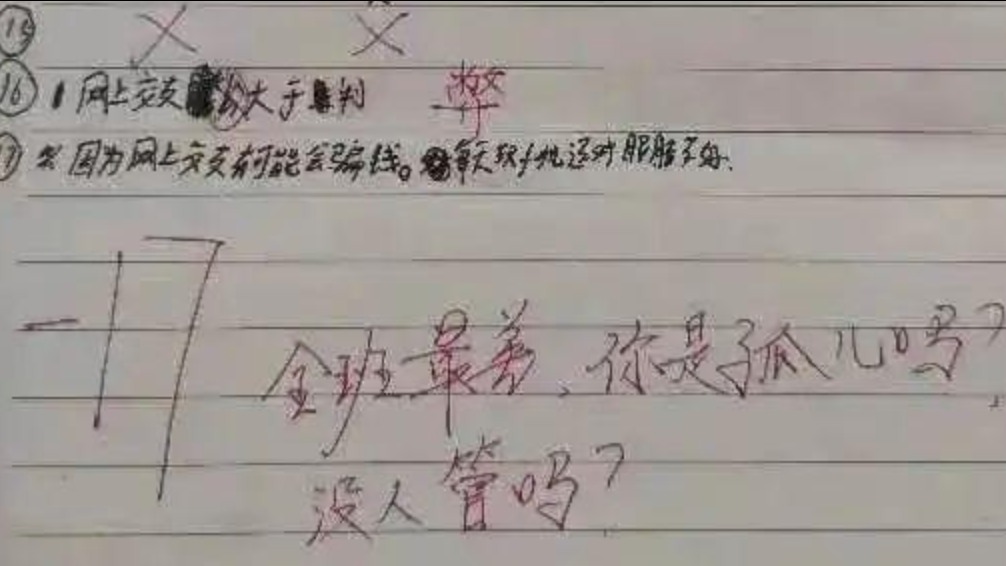 ⑮
⑯ 网上交友大于判 弊
⑰ 因为网上交友有可能会骗钱。玩手机还对眼睛不好.
-17
全班最差、你是孤儿吗?
没人管吗?